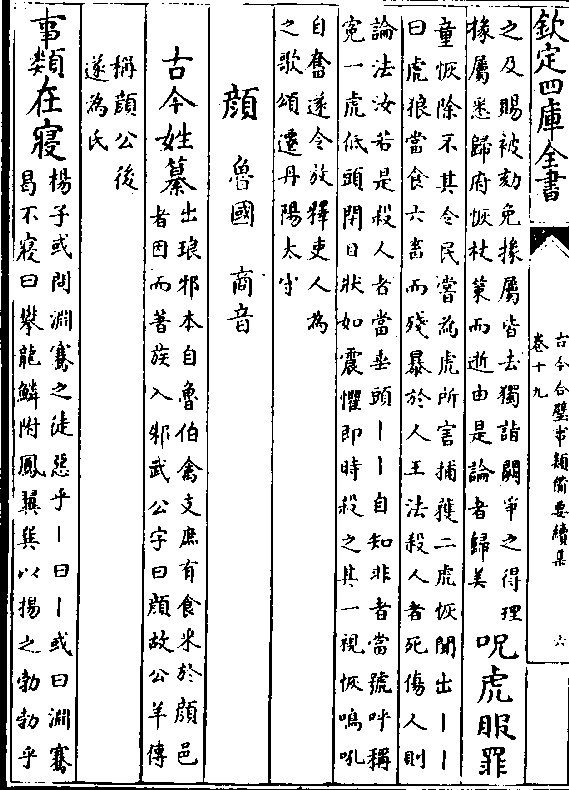 欽定四庫全書
古今合璧事類備要續集
卷十九
六
之及賜被劾免掾屬皆去獨詣闕爭之得理
掾屬悉歸府恢杖䇿而逝由是論者歸美
呪虎服罪
童恢除不其令民嘗為虎所害捕獲二虎恢聞出丨丨
曰虎狼當食六畜而殘暴於人王法殺人者死傷人則
論法汝若是殺人者當垂頭丨丨自知非者當號呼稱
寃一虎低頭閉目狀如震懼即時殺之其一視恢鳴吼
自奮遂令放釋吏人為
之歌頌遷丹陽太守
顔
魯國
商音
古今姓纂
出琅邪本自魯伯禽支庶有食采於顔邑
者因而著族入邾武公字曰顔故公羊傳
稱顔公後
遂為氏
事類
在寢
楊子或問淵騫之徒惡乎丨曰丨或曰淵騫
曷不寢曰攀龍鱗附鳳翼㢲以揚之勃勃乎